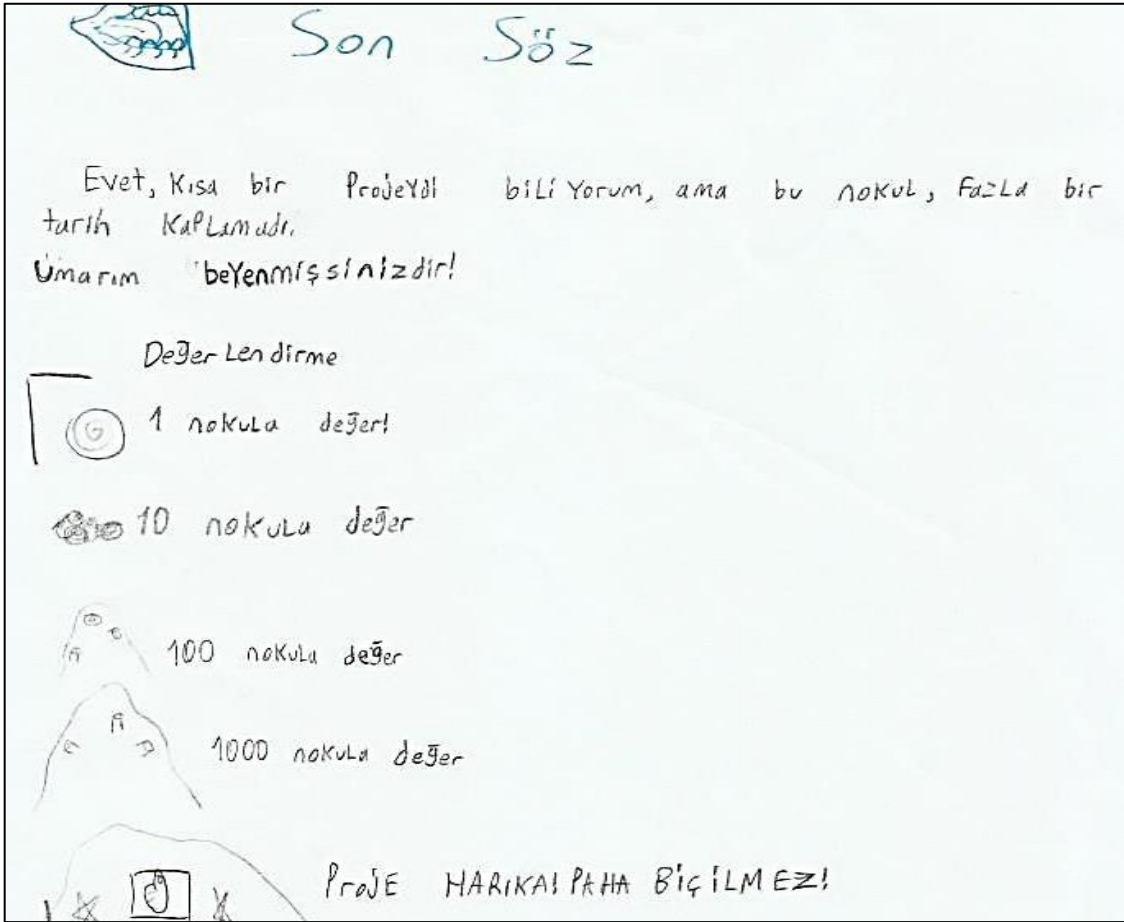 Son Söz
Evet, Kısa bir Projeydi biliyorum, ama bu nokul, Fazla bir
tarih kaplamadı.
Umarım beyenmişsinizdir!
Değerlendirme
1 nokula değer!
10 nokula değer
100 nokula değer
1000 nokula değer
ProJE HARİKA! PAHA BİÇİLMEZ!